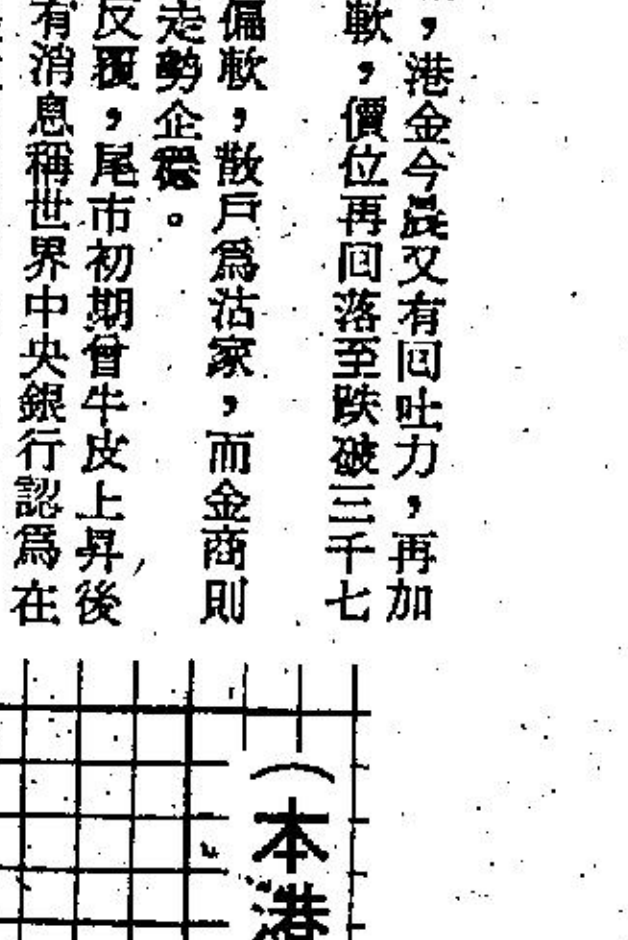 ，港金今晨又有回吐力，再加
軟，價位再回落至跌破三千七
偏軟，散戶爲沽家，而金商則
走勢企穩。
反覆，尾市初期曾牛皮上昇，後
有消息稱世界中央銀行認爲在
（本港